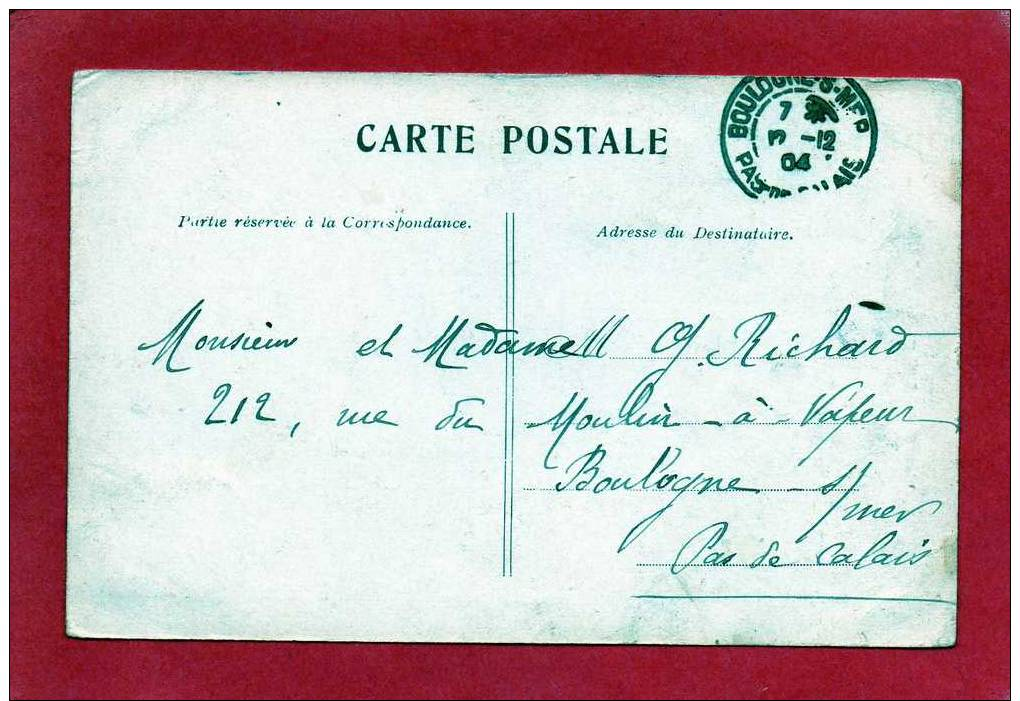 CARTE POSTALE
BOULOGNE-S-MER
7
3 -12
04
PAS-DE-CALAIS
Partie réservée à la Correspondance.
Adresse du Destinataire.
Monsieur et Madame Richard
212, rue du Moulin-à-Vapeur
Boulogne s/mer
Pas de Calais